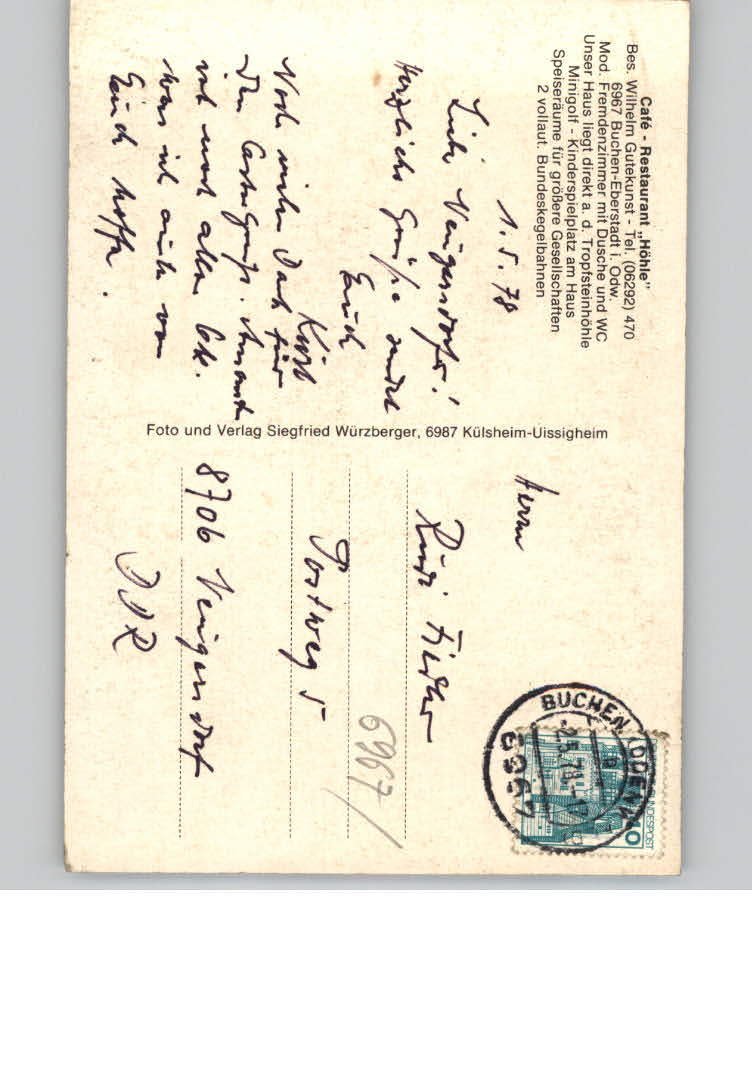 Café - Restaurant „Höhle"
Bes. Wilhelm Gutekunst - Tel. (06292) 470
6967 Buchen-Eberstadt i. Odw.
Mod. Fremdenzimmer mit Dusche und WC
Unser Haus liegt direkt a. d. Tropfsteinhöhle
Minigolf - Kinderspielplatz am Haus
Speiseräume für größere Gesellschaften
2 vollaut. Bundeskegelbahnen
1.5.78
Liebe Neugersdorfer!
Herzliche Grüße sendet
Euch
Kurt
Noch vielen Dank für
den Ostergruß.
mit uns alles Ok.
was ich auch von
Euch hoffe.
Foto und Verlag Siegfried Würzberger, 6987 Külsheim-Uissigheim
Herrn
Rudi Fiedler
Postweg 5
8706 Neugersdorf
DDR
6967/
BUCHEN ODENW
-2.5.78
6967
BUNDESPOST
40